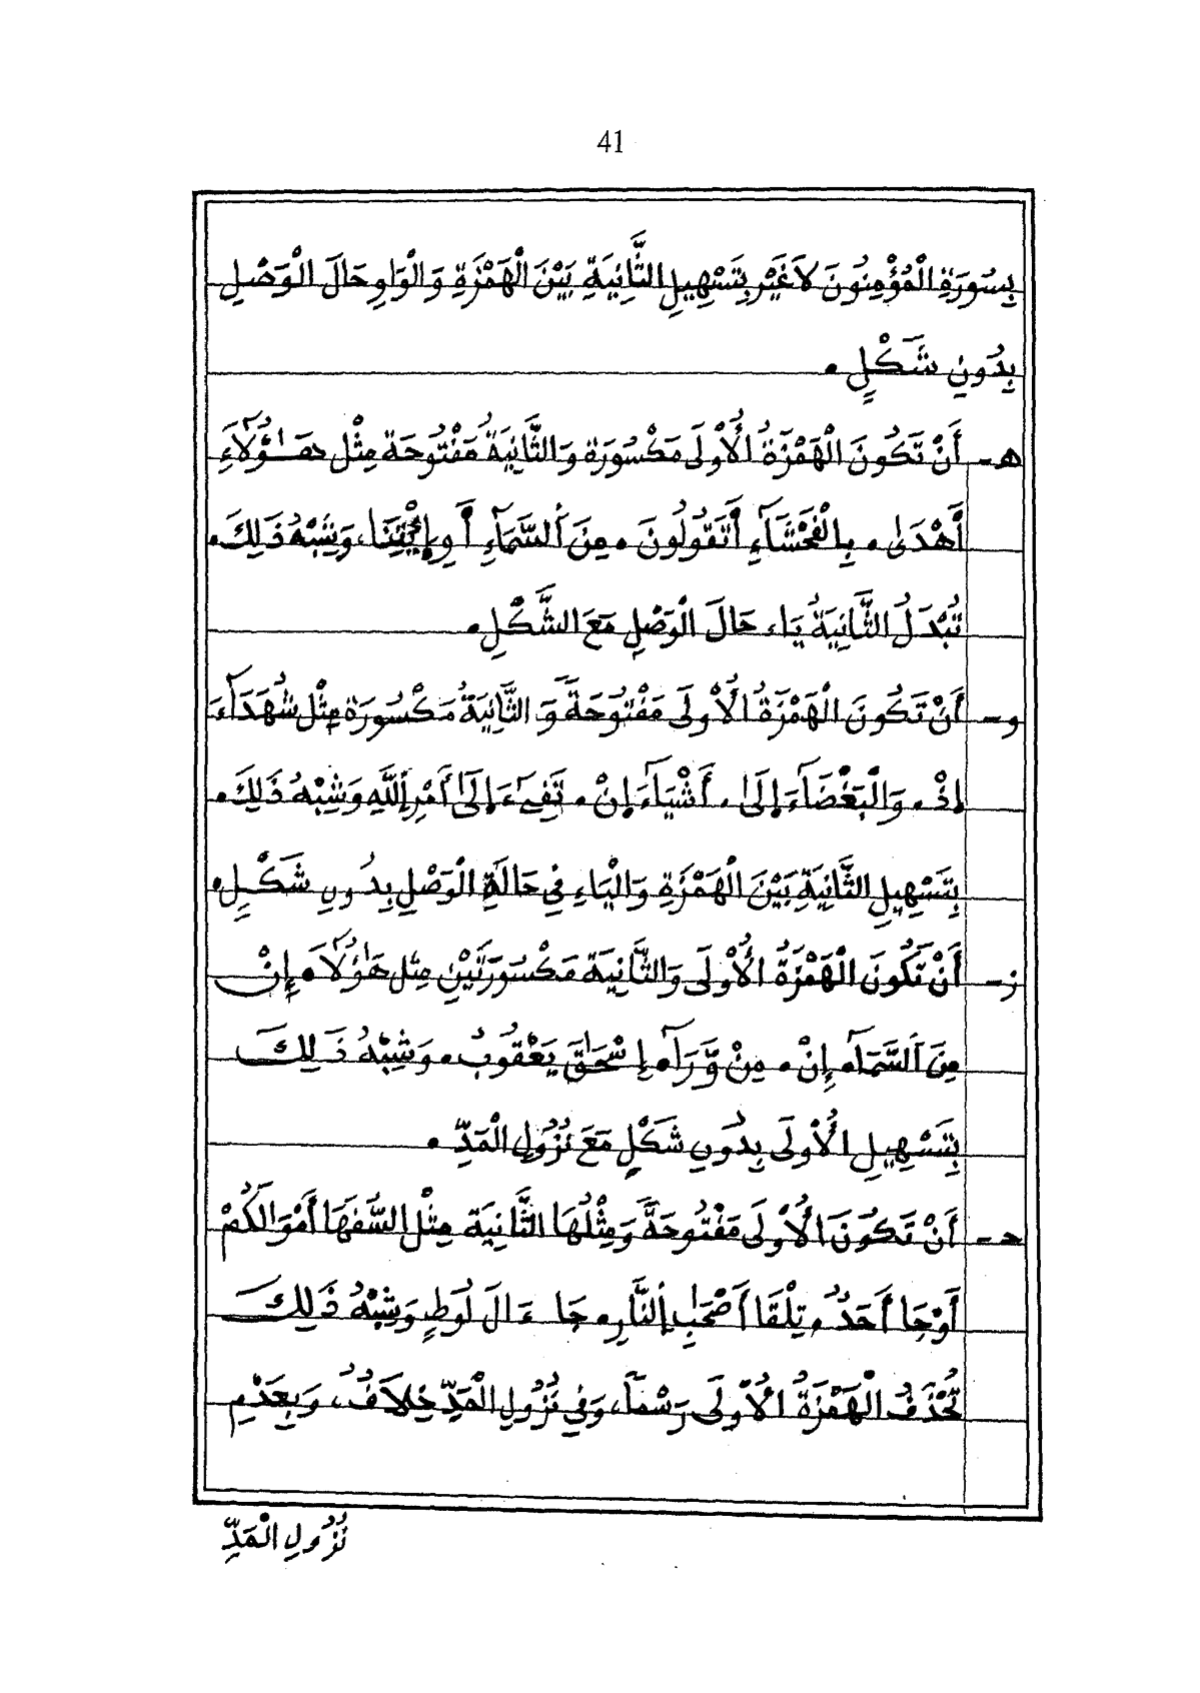 41
بِسُورَةِ الْمُؤْمِنُونَ لَاغَيْر بِتَسْهِيلِ الثَّانِيَةِ بَيْنَ الْهَمْزَةِ وَالْوَاوِ حَالَ الْوَصْلِ
بِدُونِ شَكْلٍ .
هـ - أَنْ تَكُونَ الْهَمْزَةُ الْأُولَى مَكْسُورَة وَالثَّانِيَةُ مَفْتُوحَة مِثْل هَـٰؤُلَآءِ
أَهْدَىٰ . بِالْفَحْشَآءِ أَتَقُولُونَ . مِنَ السَّمَآءِ أَوِ ائْتِنَا، وَشِبْهُ ذَلِكَ .
تُبْدَلُ الثَّانِيَةُ يَاء حَالَ الْوَصْلِ مَعَ الشَّكْلِ .
و - أَنْ تَكُونَ الْهَمْزَةُ الْأُولَى مَفْتُوحَةً وَالثَّانِيَةُ مَكْسُورَة مِثْل شُهَدَآءَ
إِذْ . وَالْبَغْضَآءَ إِلَىٰ . أَشْيَآءَ إِنْ . تَفِيءَ إِلَىٰ أَمْرِ اللَّهِ وَشِبْهُ ذَلِكَ .
بِتَسْهِيلِ الثَّانِيَةِ بَيْنَ الْهَمْزَةِ وَالْيَاءِ فِي حَالَةِ الْوَصْلِ بِدُونِ شَكْلٍ .
ز - أَنْ تَكُونَ الْهَمْزَةُ الْأُولَى وَالثَّانِيَة مَكْسُورَتَيْنِ مِثْل هَٰؤُلَآ . إِنْ
مِنَ السَّمَآ . إِنْ . مِنْ وَّرَآ . إِسْحَٰقَ يَعْقُوبَ . وَشِبْهُ ذَلِكَ
بِتَسْهِيلِ الْأُولَى بِدُونِ شَكْلٍ مَعَ نُزُولِ الْمَدِّ .
ح - أَنْ تَكُونَ الْأُولَى مَفْتُوحَةً وَمِثْلُهَا الثَّانِيَة مِثْل السُّفَهَا أَمْوَالَكُمْ
أَوْ جَا أَحَدٌ . تِلْقَا أَصْحَٰبِ النَّارِ . جَا ءَالَ لُوطٍ وَشِبْهُ ذَلِكَ
تُحْذَفُ الْهَمْزَةُ الْأُولَى رَسْماً، وَفِي نُزُولِ الْمَدِّ خِلَافٌ، وَبِعَدْمِ
نُزُولِ الْمَدِّ